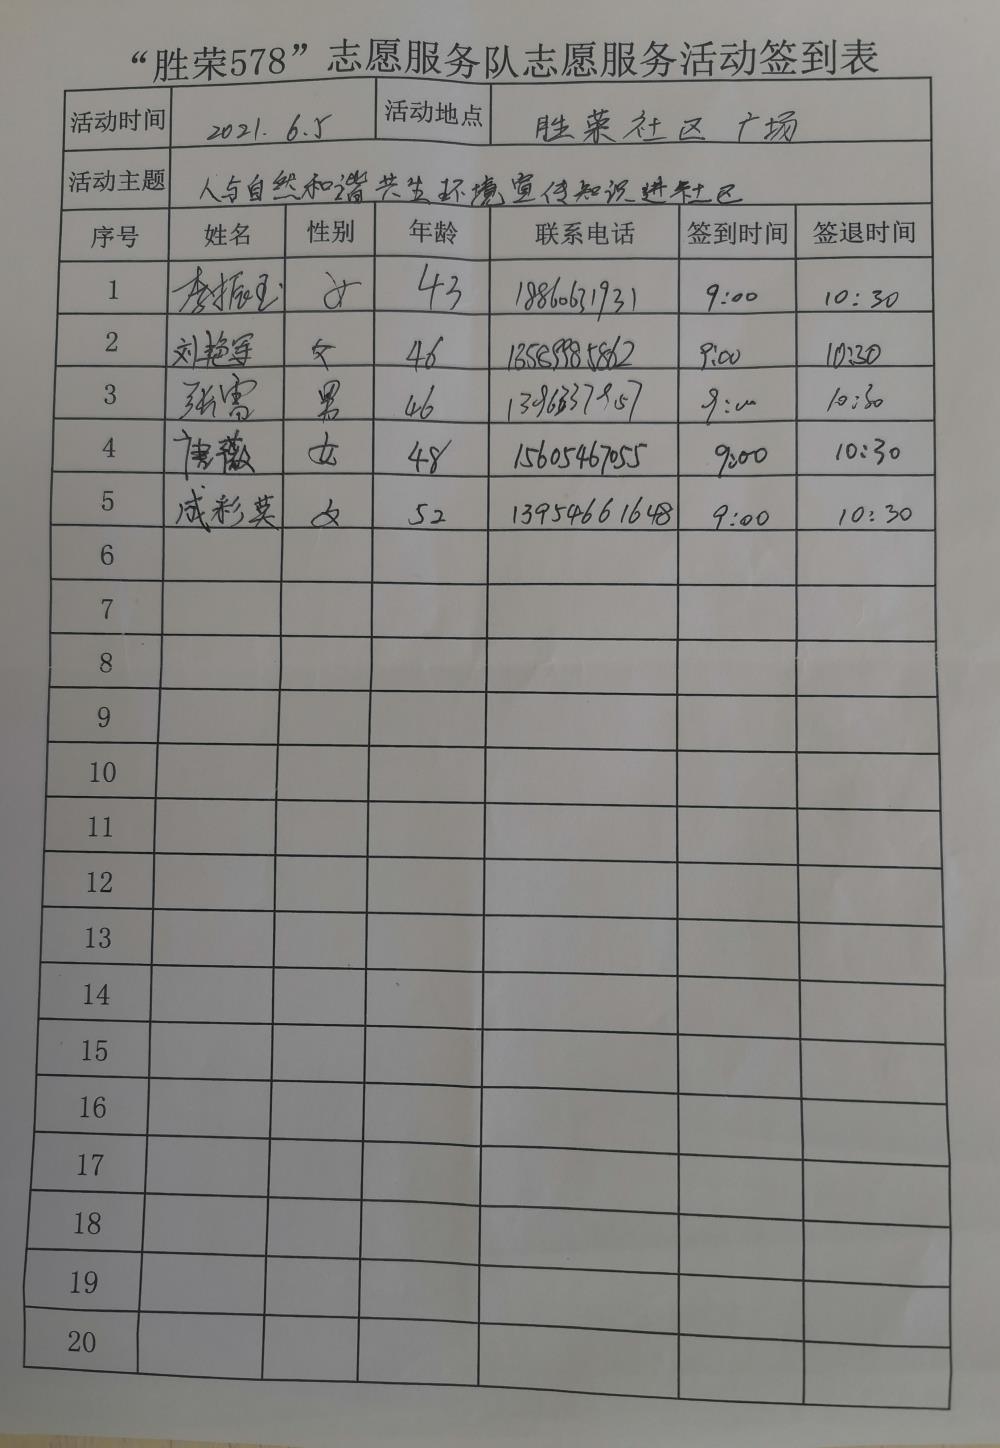 “胜荣578”志愿服务队志愿服务活动签到表
活动时间 2021.6.5 活动地点 胜荣社区广场
活动主题 人与自然和谐共生环境宣传知识进社区
序号 姓名 性别 年龄 联系电话 签到时间 签退时间
1 李振玉 女 43 18860631931 9:00 10:30
2 刘艳军 女 46 13589985862 9:00 10:30
3 张雪 男 46 9:00 10:30
4 唐薇 女 48 15605467055 9:00 10:30
5 成彩英 女 52 13954661648 9:00 10:30
6
7
8
9
10
11
12
13
14
15
16
17
18
19
20